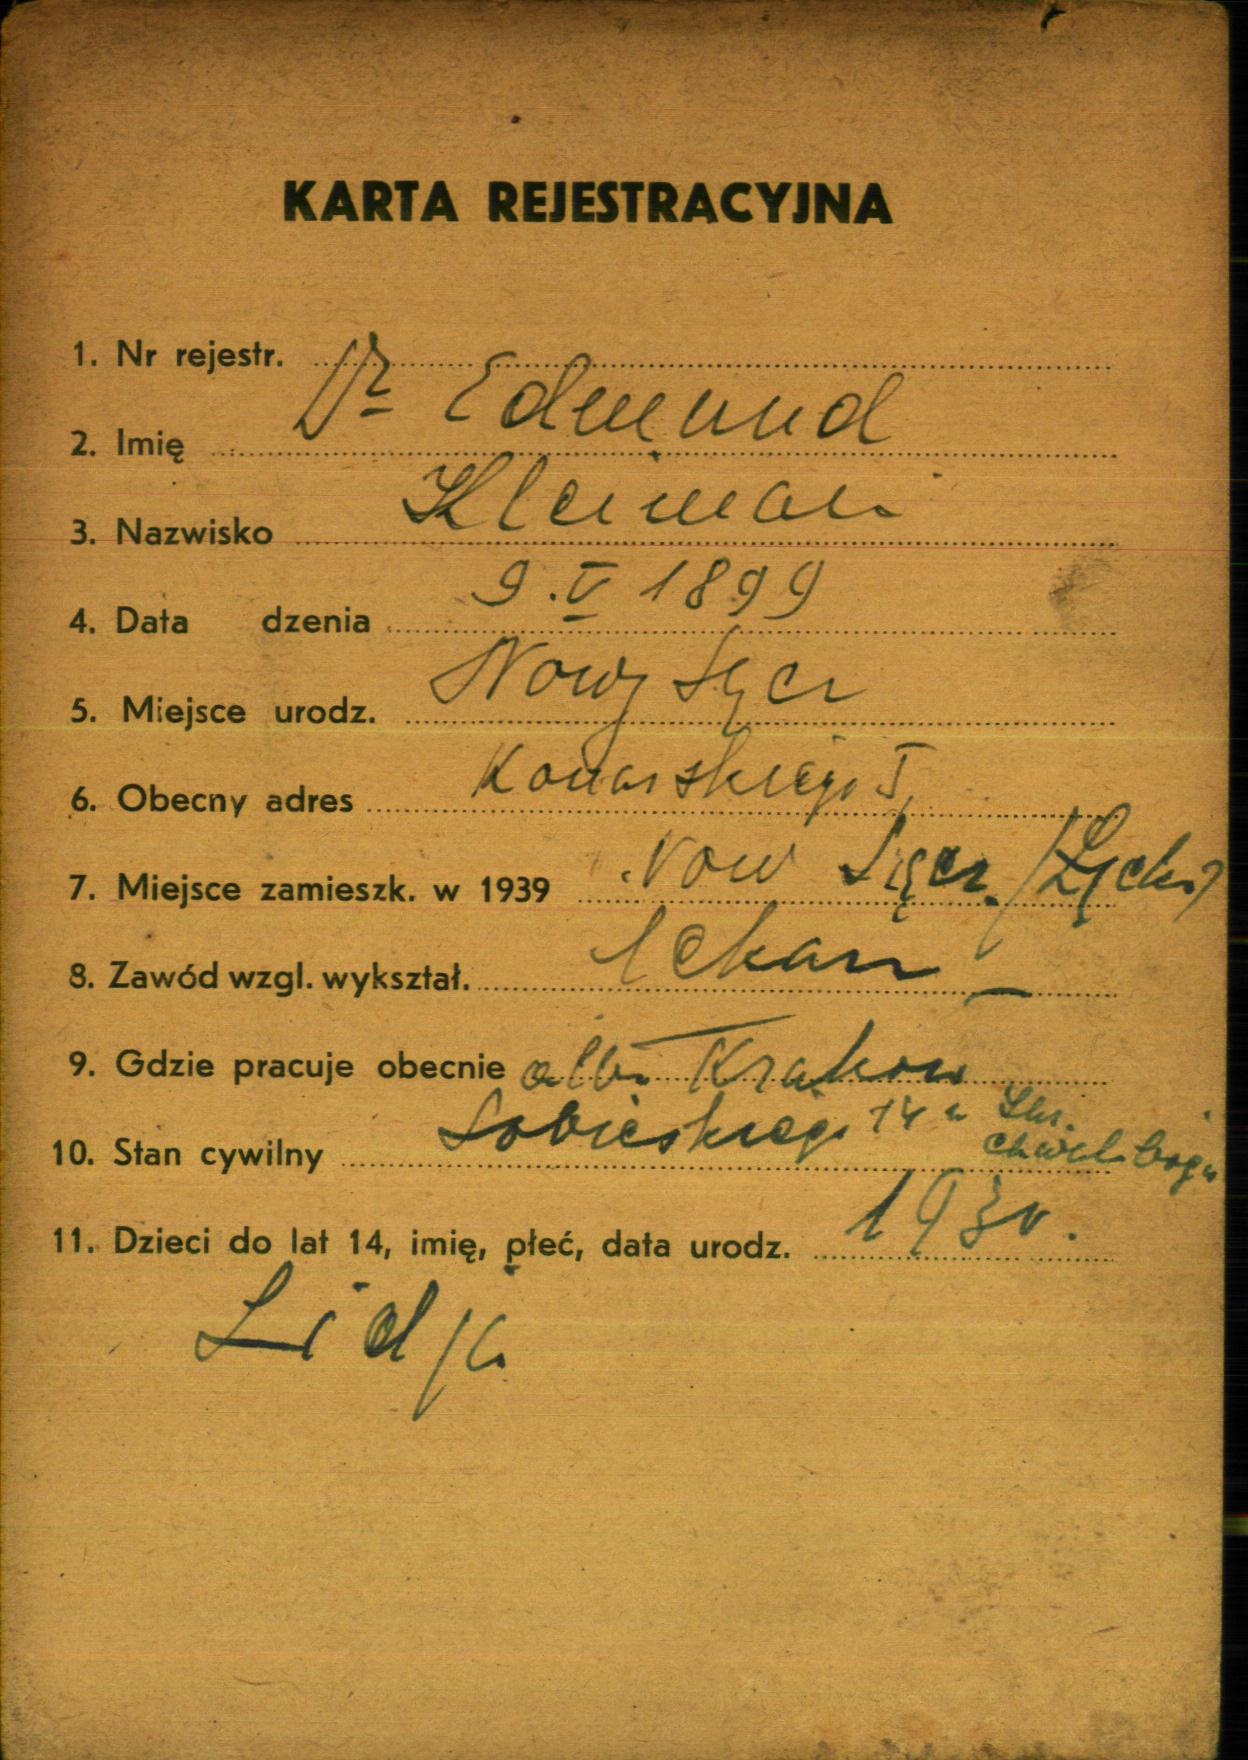 KARTA REJESTRACYJNA
1. Nr rejestr.
2. Imię Dr Edmund
3. Nazwisko Kleinman
4. Data dzenia 9. V 1899
5. Miejsce urodz. Nowy Sącz
6. Obecny adres Konarskiego
7. Miejsce zamieszk. w 1939 Now Sącz
8. Zawód wzgl. wykształ. lekarz
9. Gdzie pracuje obecnie albo Krakow
10. Stan cywilny Sobieskiego 14
11. Dzieci do lat 14, imię, płeć, data urodz. 1930.
Lidja